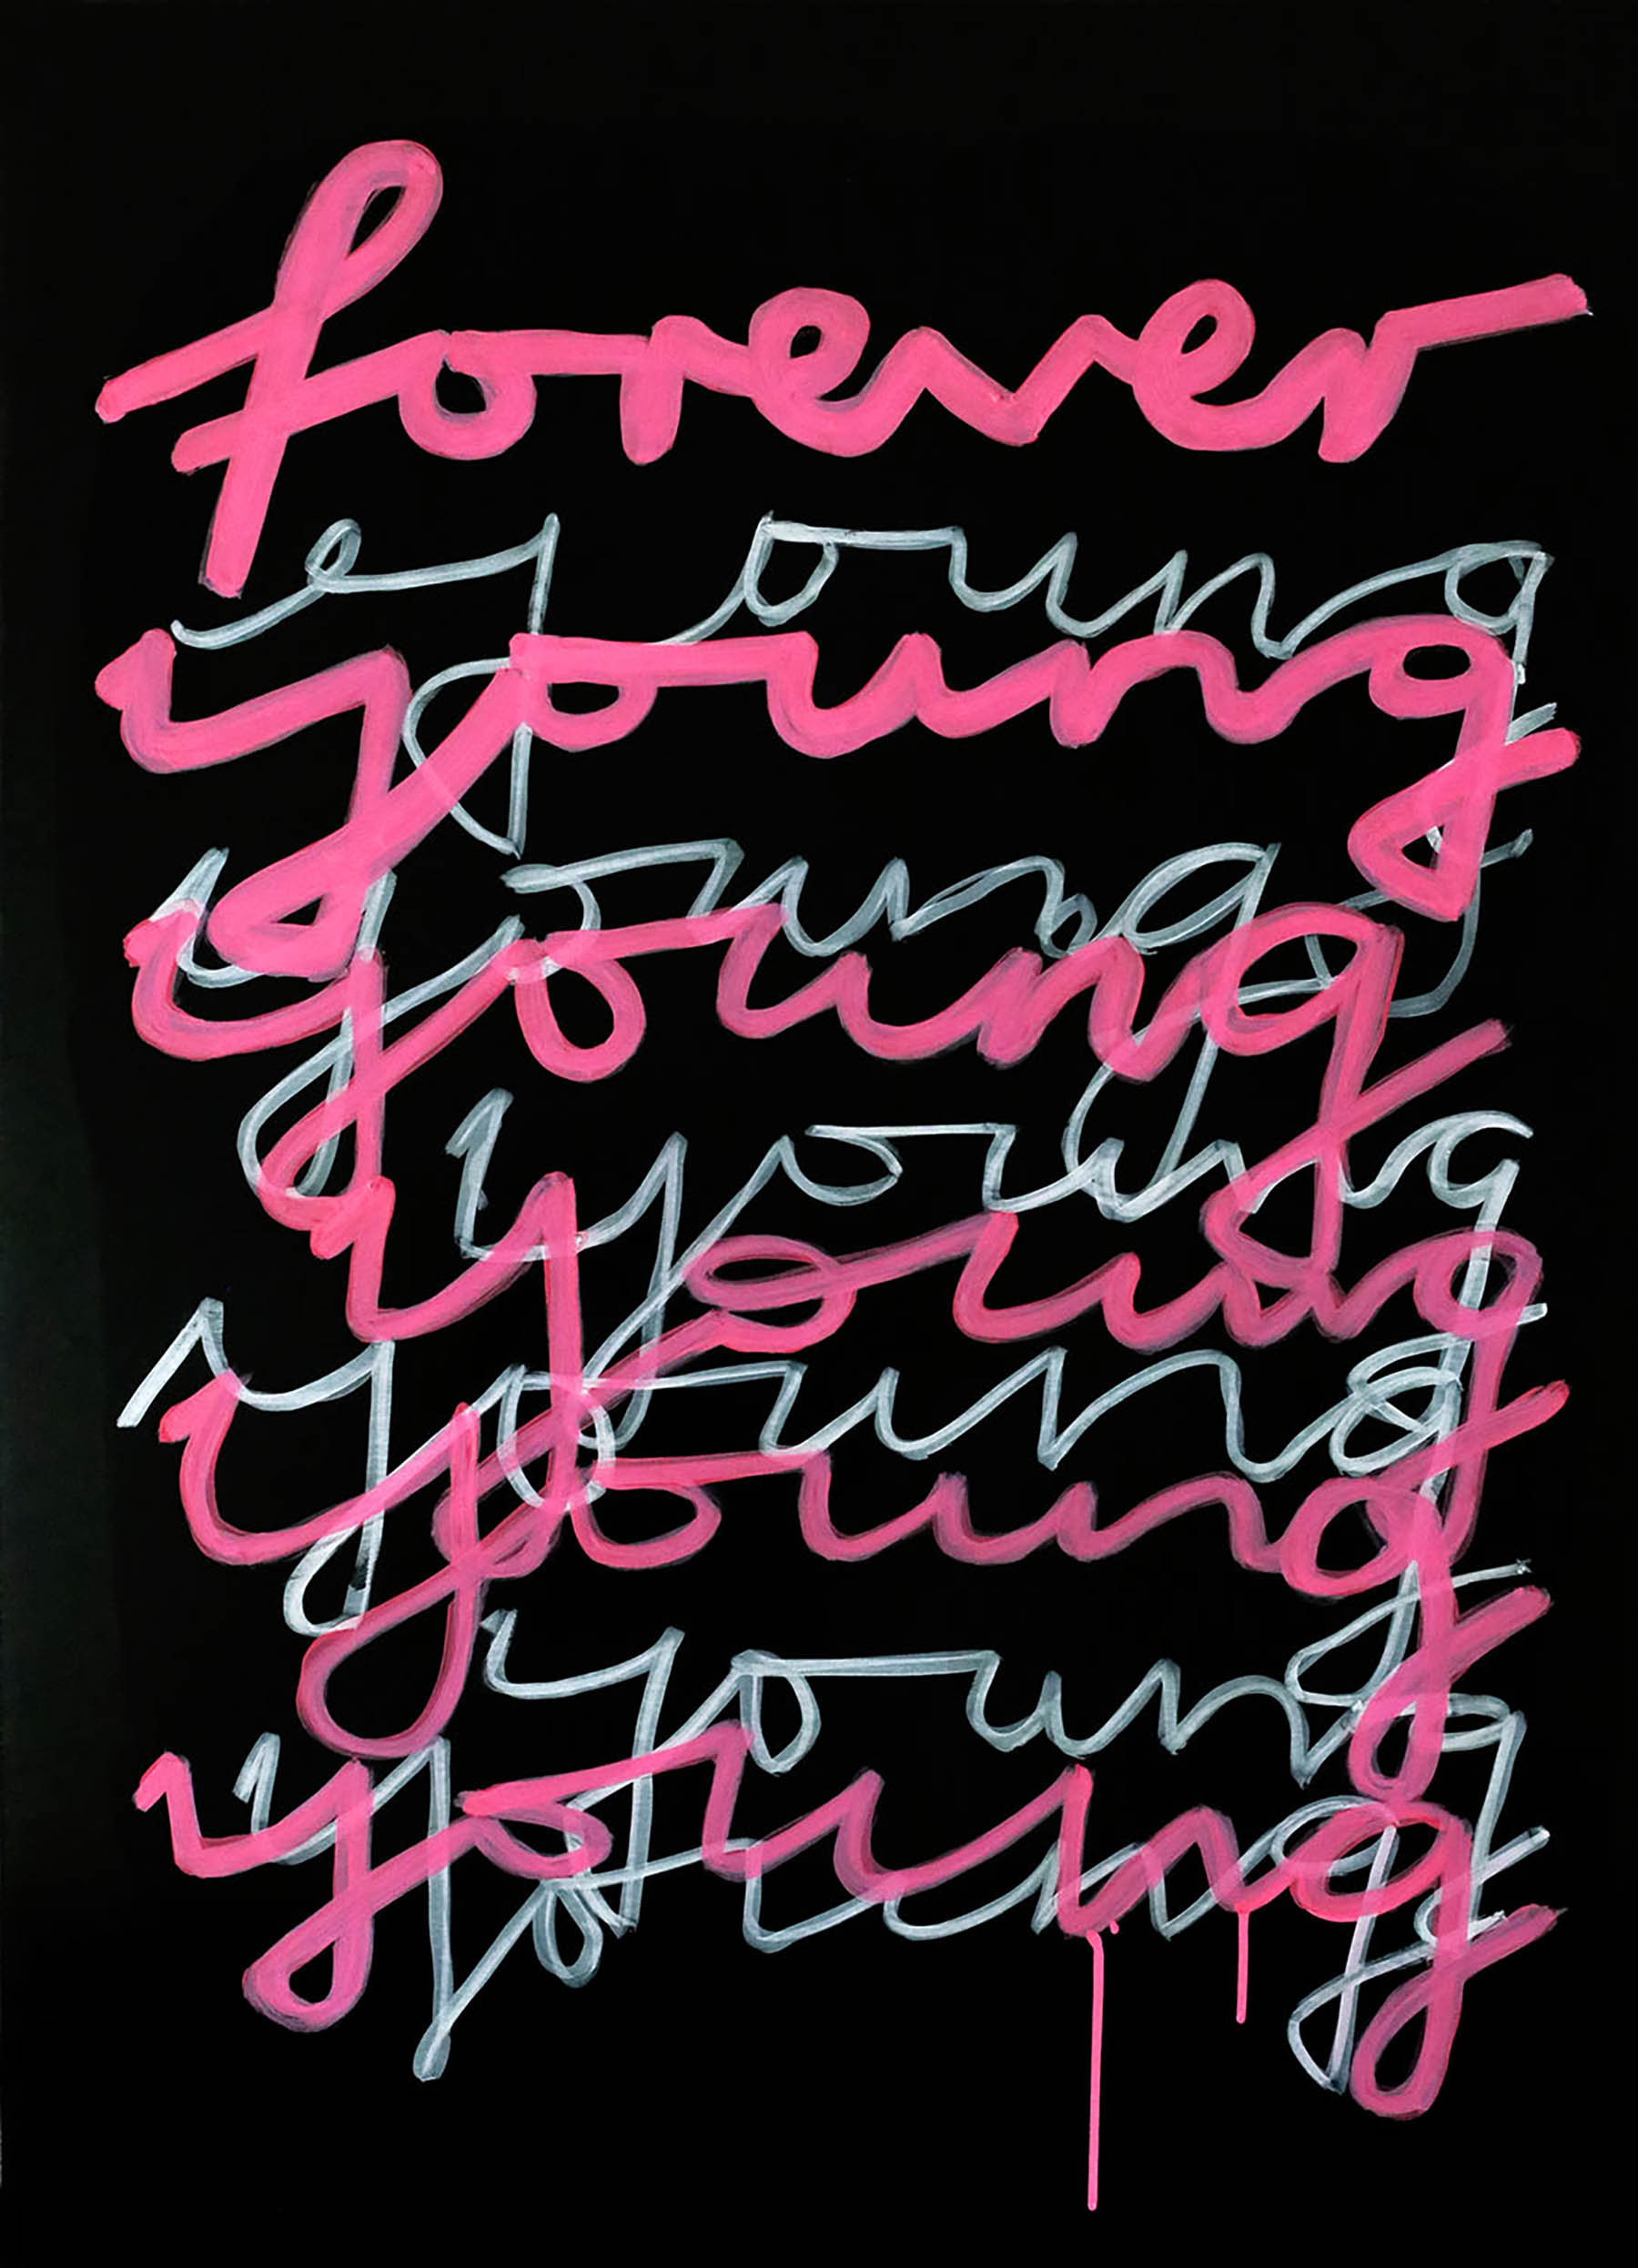 forever
young
young
young
young
young
young
young
young
young
young
young